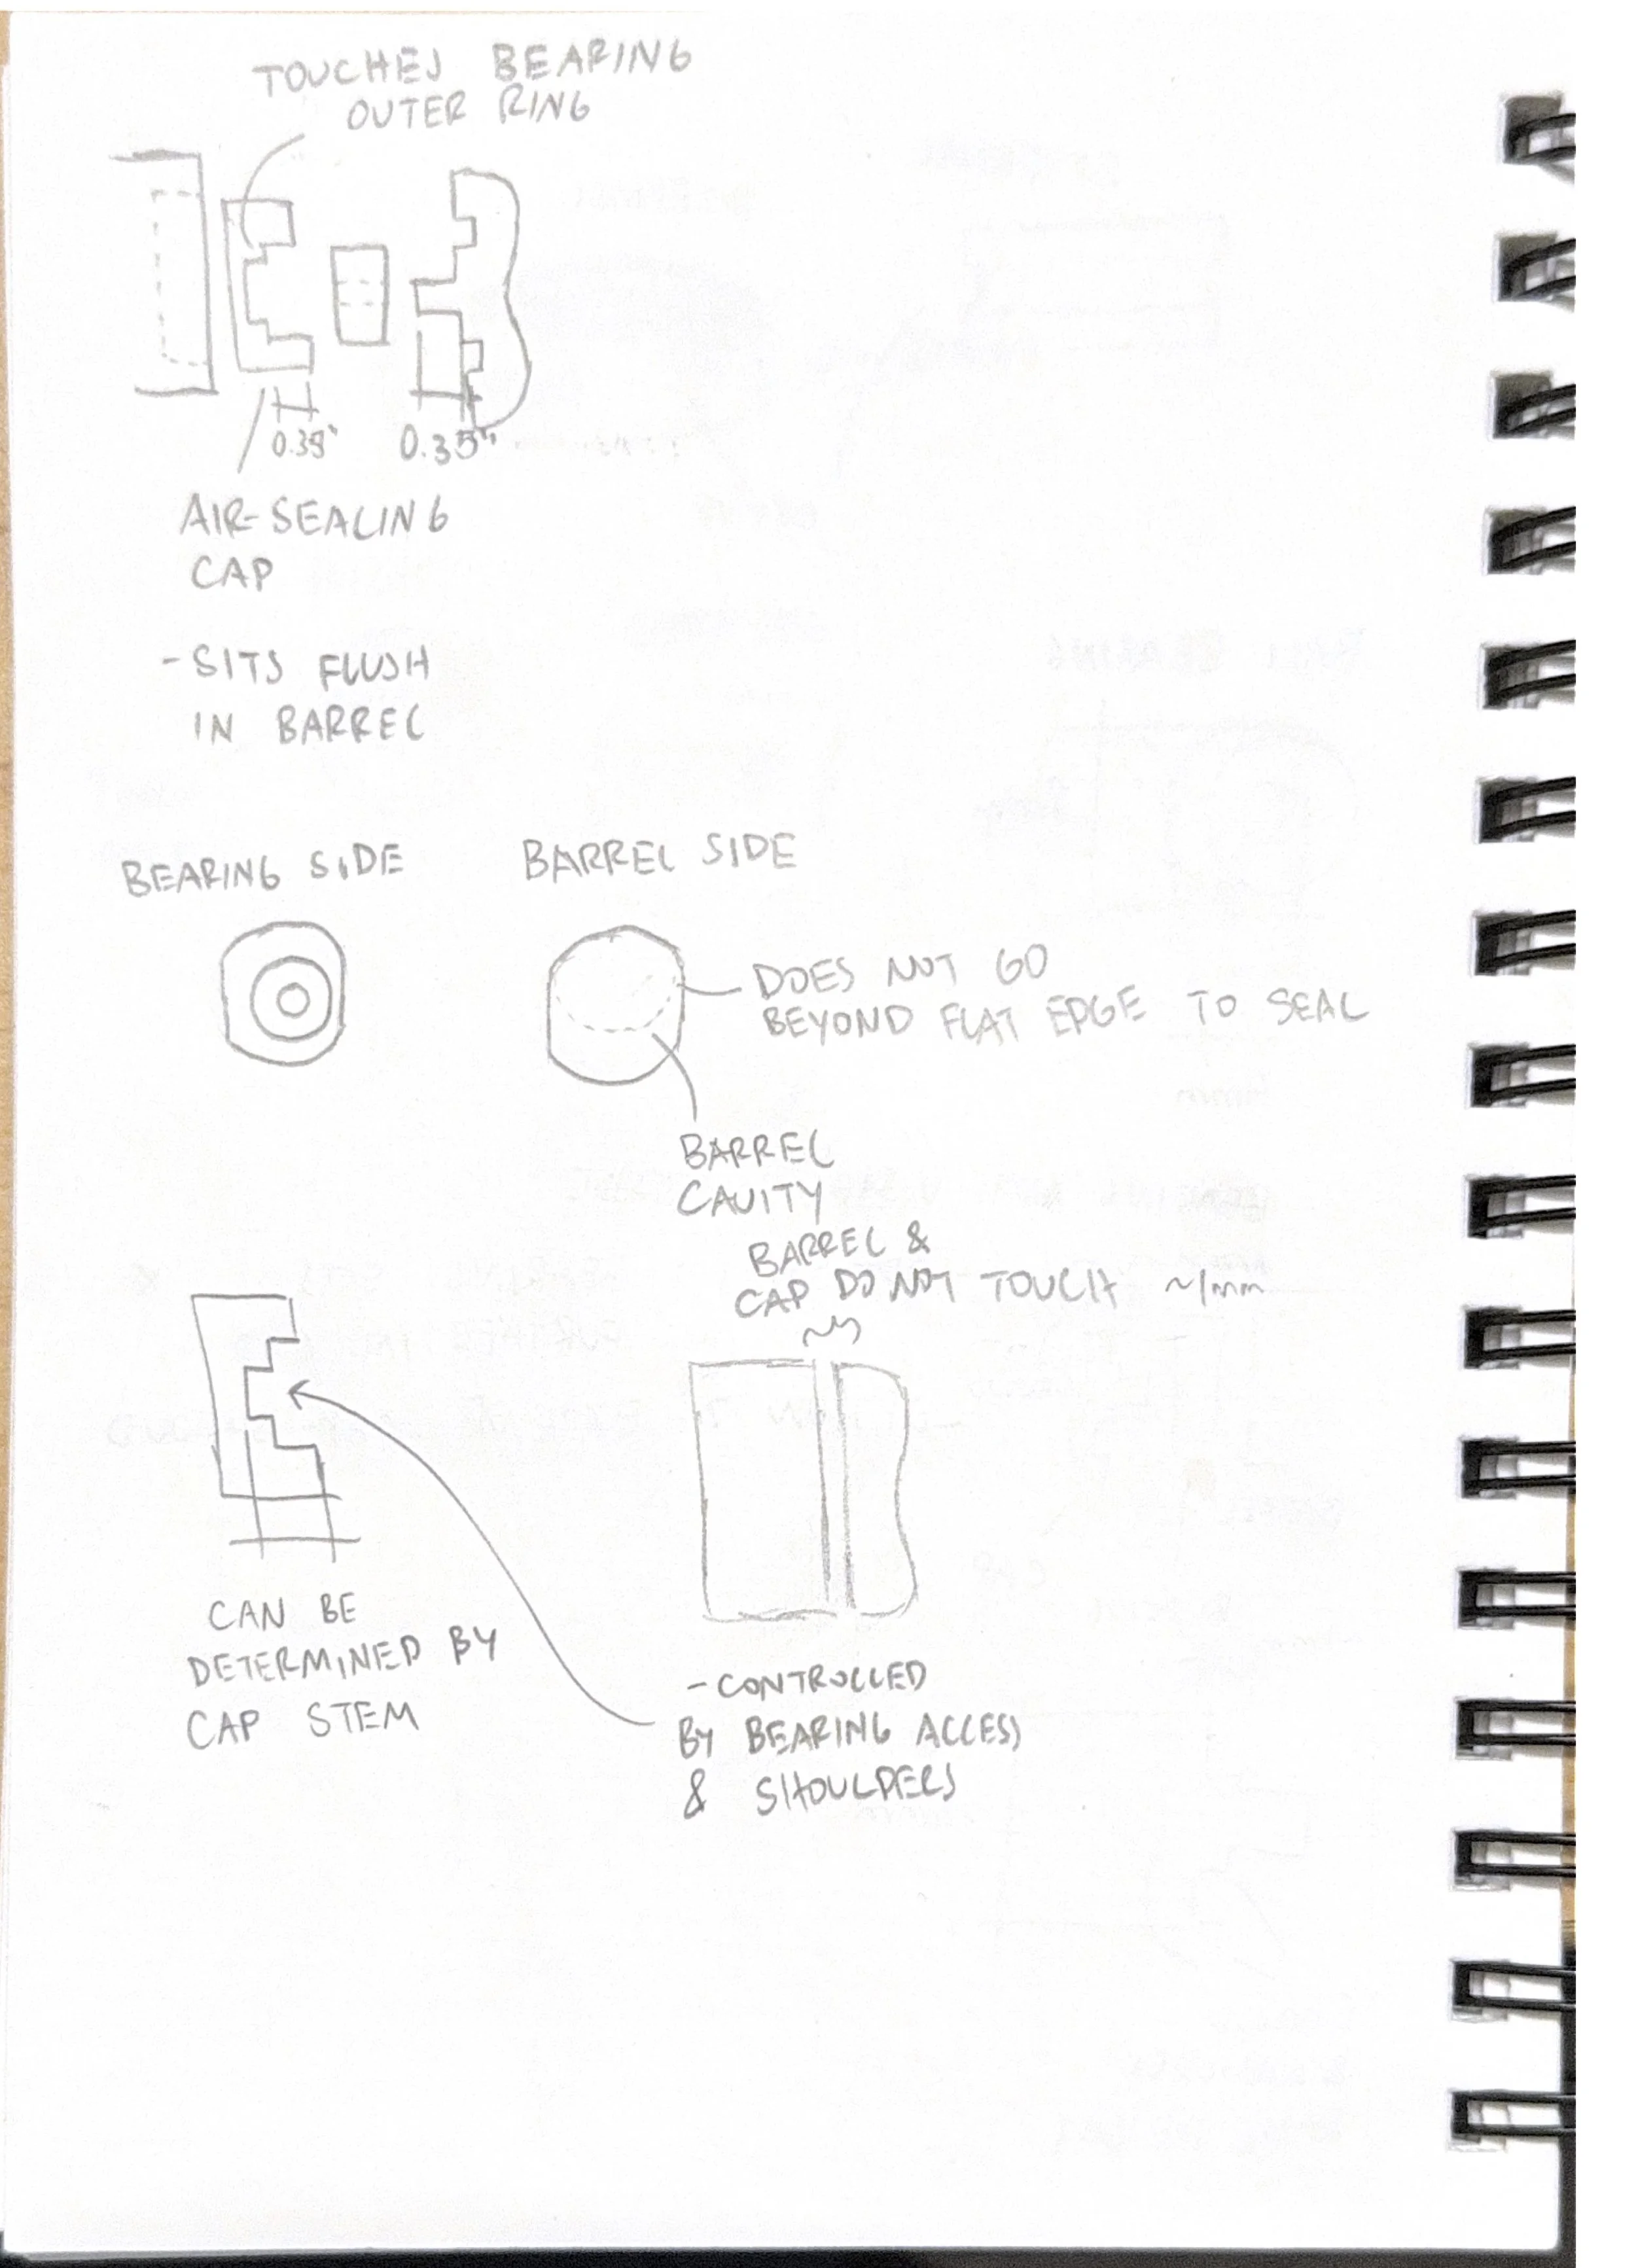 TOUCHES BEARING
OUTER RING
0.35"
0.35"
AIR-SEALING
CAP
- SITS FLUSH
IN BARREL
BEARING SIDE
BARREL SIDE
DOES NOT GO
BEYOND FLAT EDGE TO SEAL
BARREL
CAVITY
BARREL &
CAP DO NOT TOUCH ~1mm
CAN BE
DETERMINED BY
CAP STEM
- CONTROLLED
BY BEARING ACCESS
& SHOULDERS